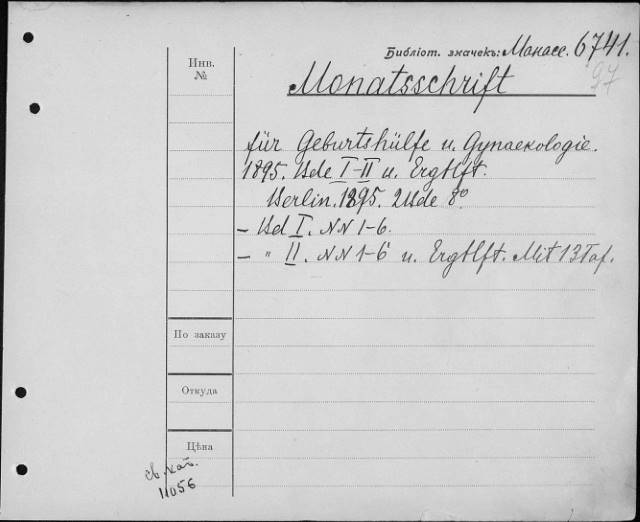 Библіот. значекъ: Манасс. 6741.
97
Инв.
№
Monatsschrift
für Geburtshülfe u. Gynaekologie.
1895. Bde I-II u. Ergtlft.
Berlin. 1895. 2 Bde 8°
- Bd I. NN 1-6.
- " II. NN 1-6 u. Ergtlft. Mit 13 Taf.
По заказу
Откуда
Цѣна
св. кат.
11056